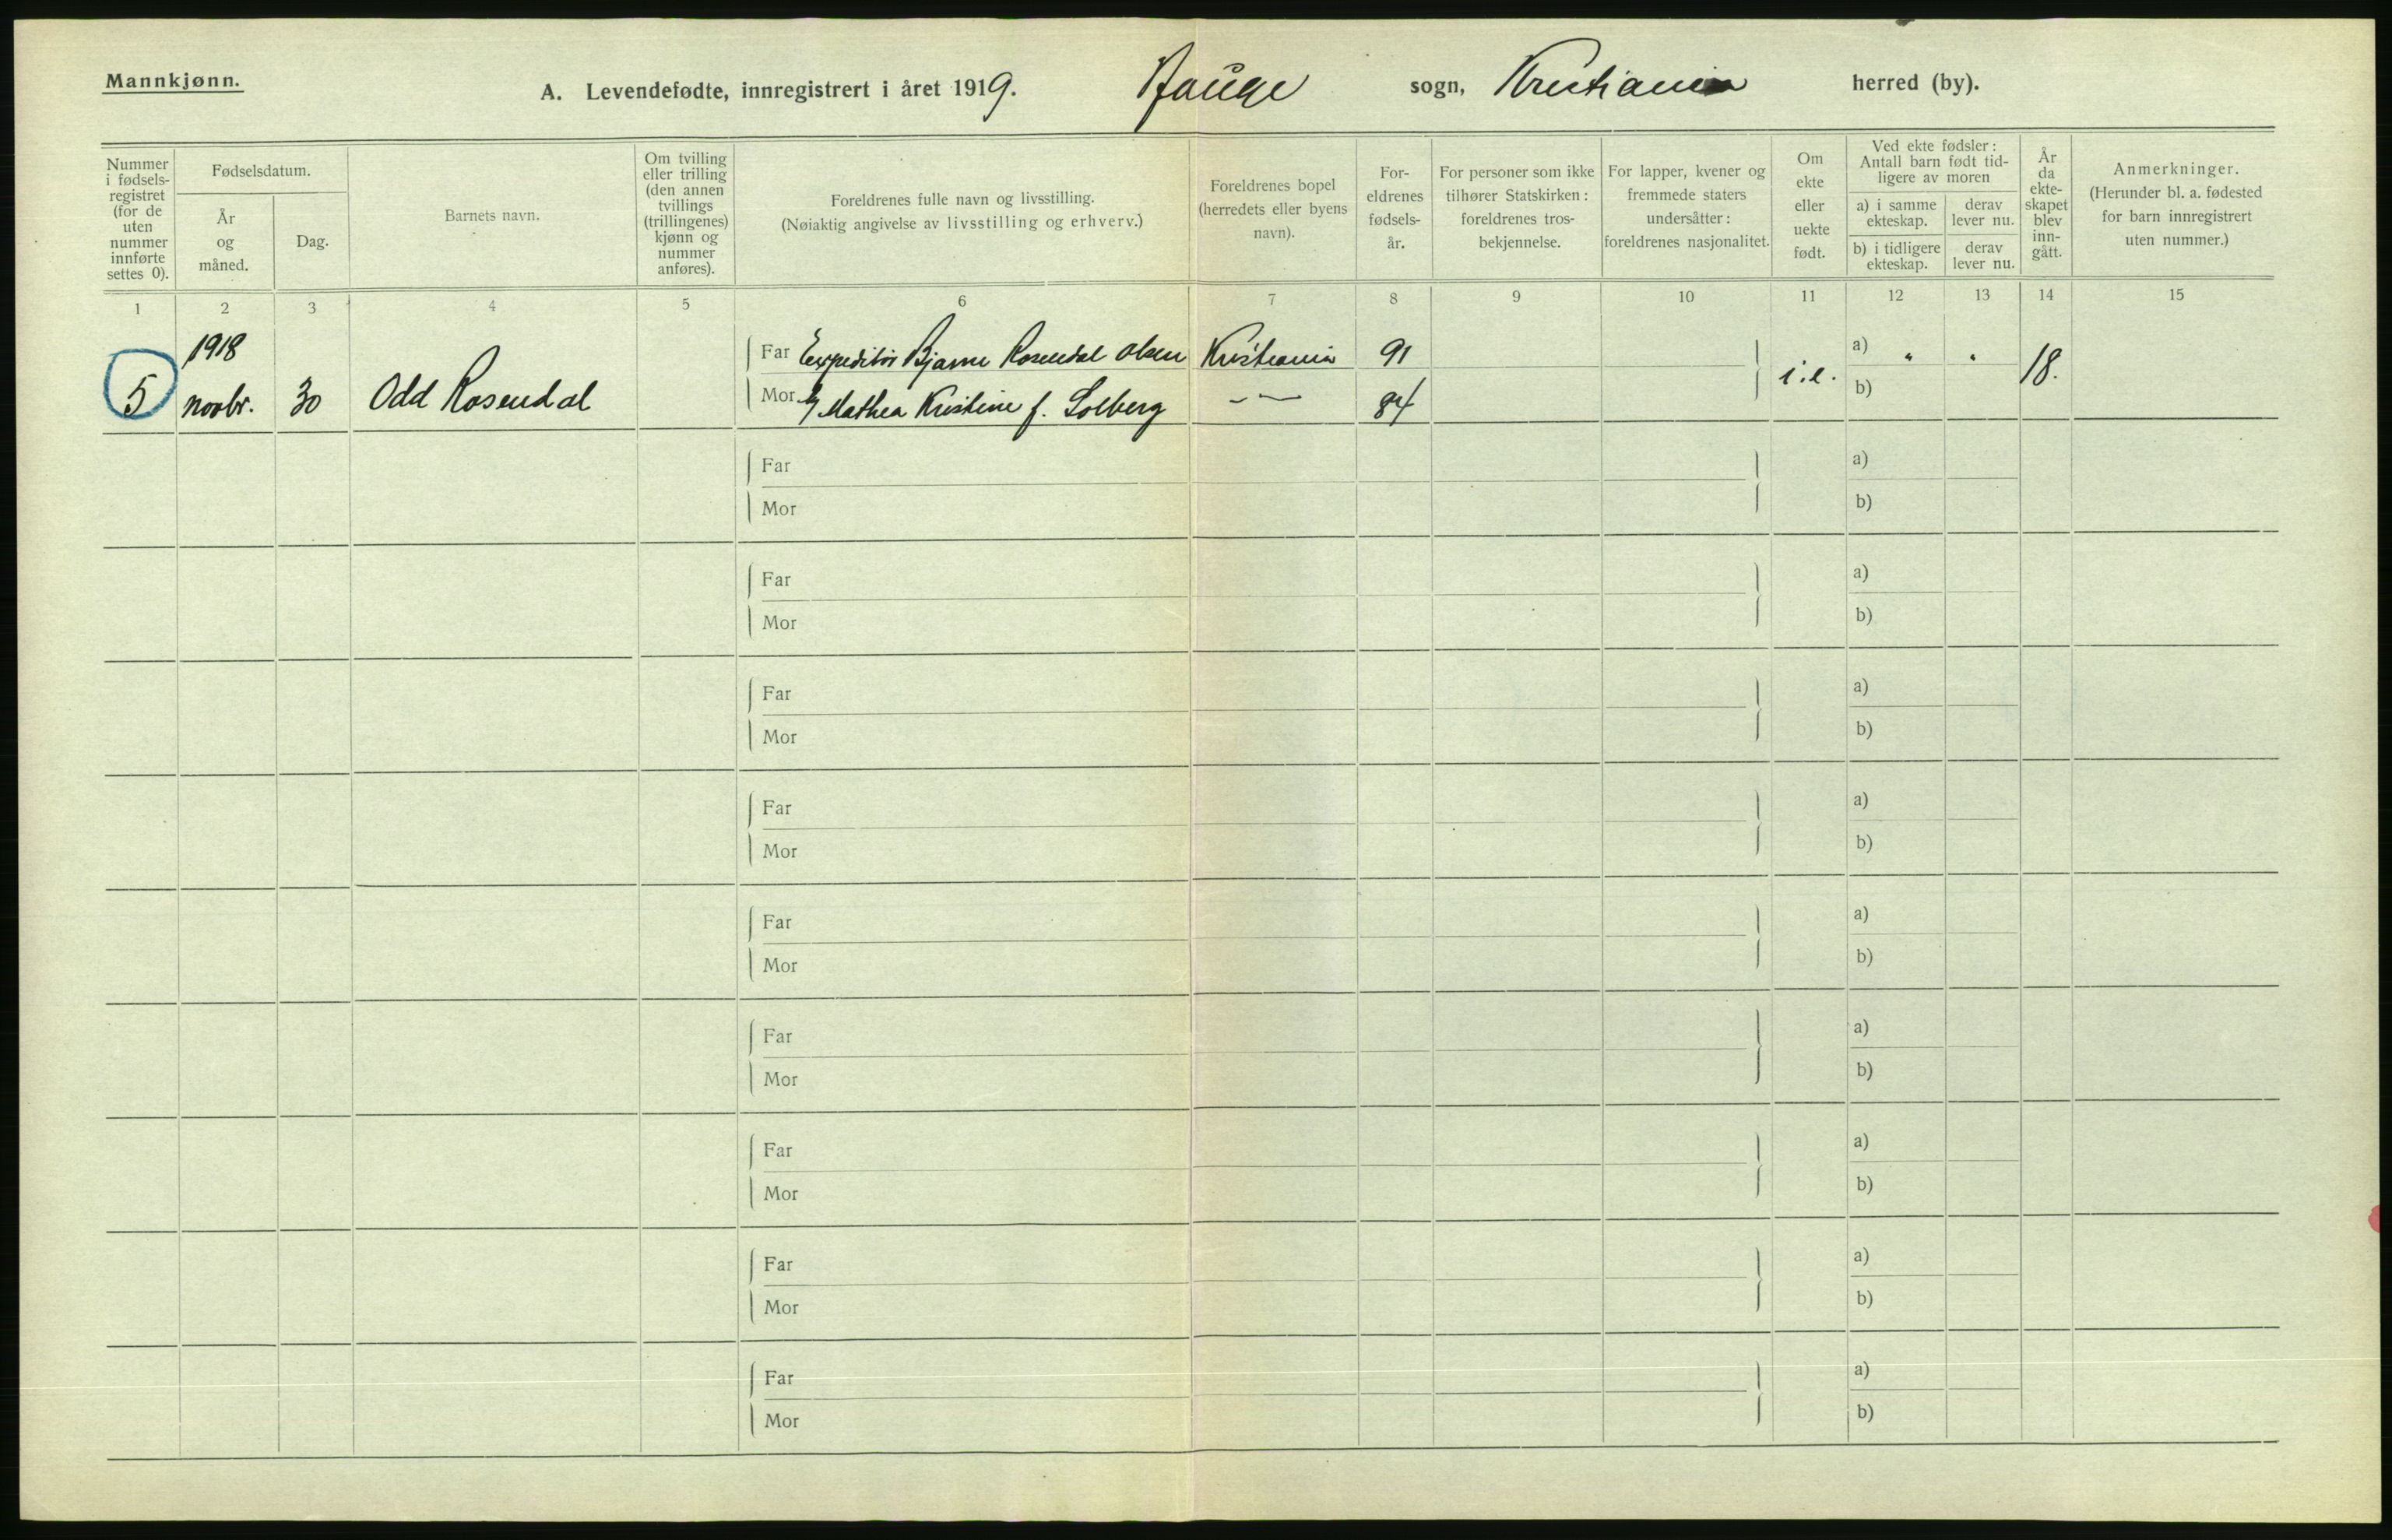 Mannkjønn.
A. Levendefødte, innregistrert i året 1919. Hauge sogn, Kristiania herred (by).
Nummer i fødsels-registret (for de uten nummer innførte settes 0).
Fødselsdatum.
År og måned.
Dag.
Barnets navn.
Om tvilling eller trilling (den annen tvillings (trillingenes) kjønn og nummer anføres).
Foreldrenes fulle navn og livsstilling.
(Nøiaktig angivelse av livsstilling og erhverv.)
Foreldrenes bopel (herredets eller byens navn).
For-eldrenes fødsels-år.
For personer som ikke tilhører Statskirken: foreldrenes tros-bekjennelse.
For lapper, kvener og fremmede staters undersåtter: foreldrenes nasjonalitet.
Om ekte eller uekte født.
Ved ekte fødsler: Antall barn født tid-ligere av moren
a) i samme ekteskap.
derav lever nu.
b) i tidligere ekteskap.
derav lever nu.
År da ekte-skapet blev inn-gått.
Anmerkninger.
(Herunder bl. a. fødested for barn innregistrert uten nummer.)
1 2 3 4 5 6 7 8 9 10 11 12 13 14 15
1918
Far Expeditør Bjarne Rosendal Olsen Kristiania 91 a) " "
5 novbr. 30 Odd Rosendal i.e. 18.
Mor Mathea Kristine f. Solberg - — 84 b)
Far a)
Mor b)
Far a)
Mor b)
Far a)
Mor b)
Far a)
Mor b)
Far a)
Mor b)
Far a)
Mor b)
Far a)
Mor b)
Far a)
Mor b)
Far a)
Mor b)